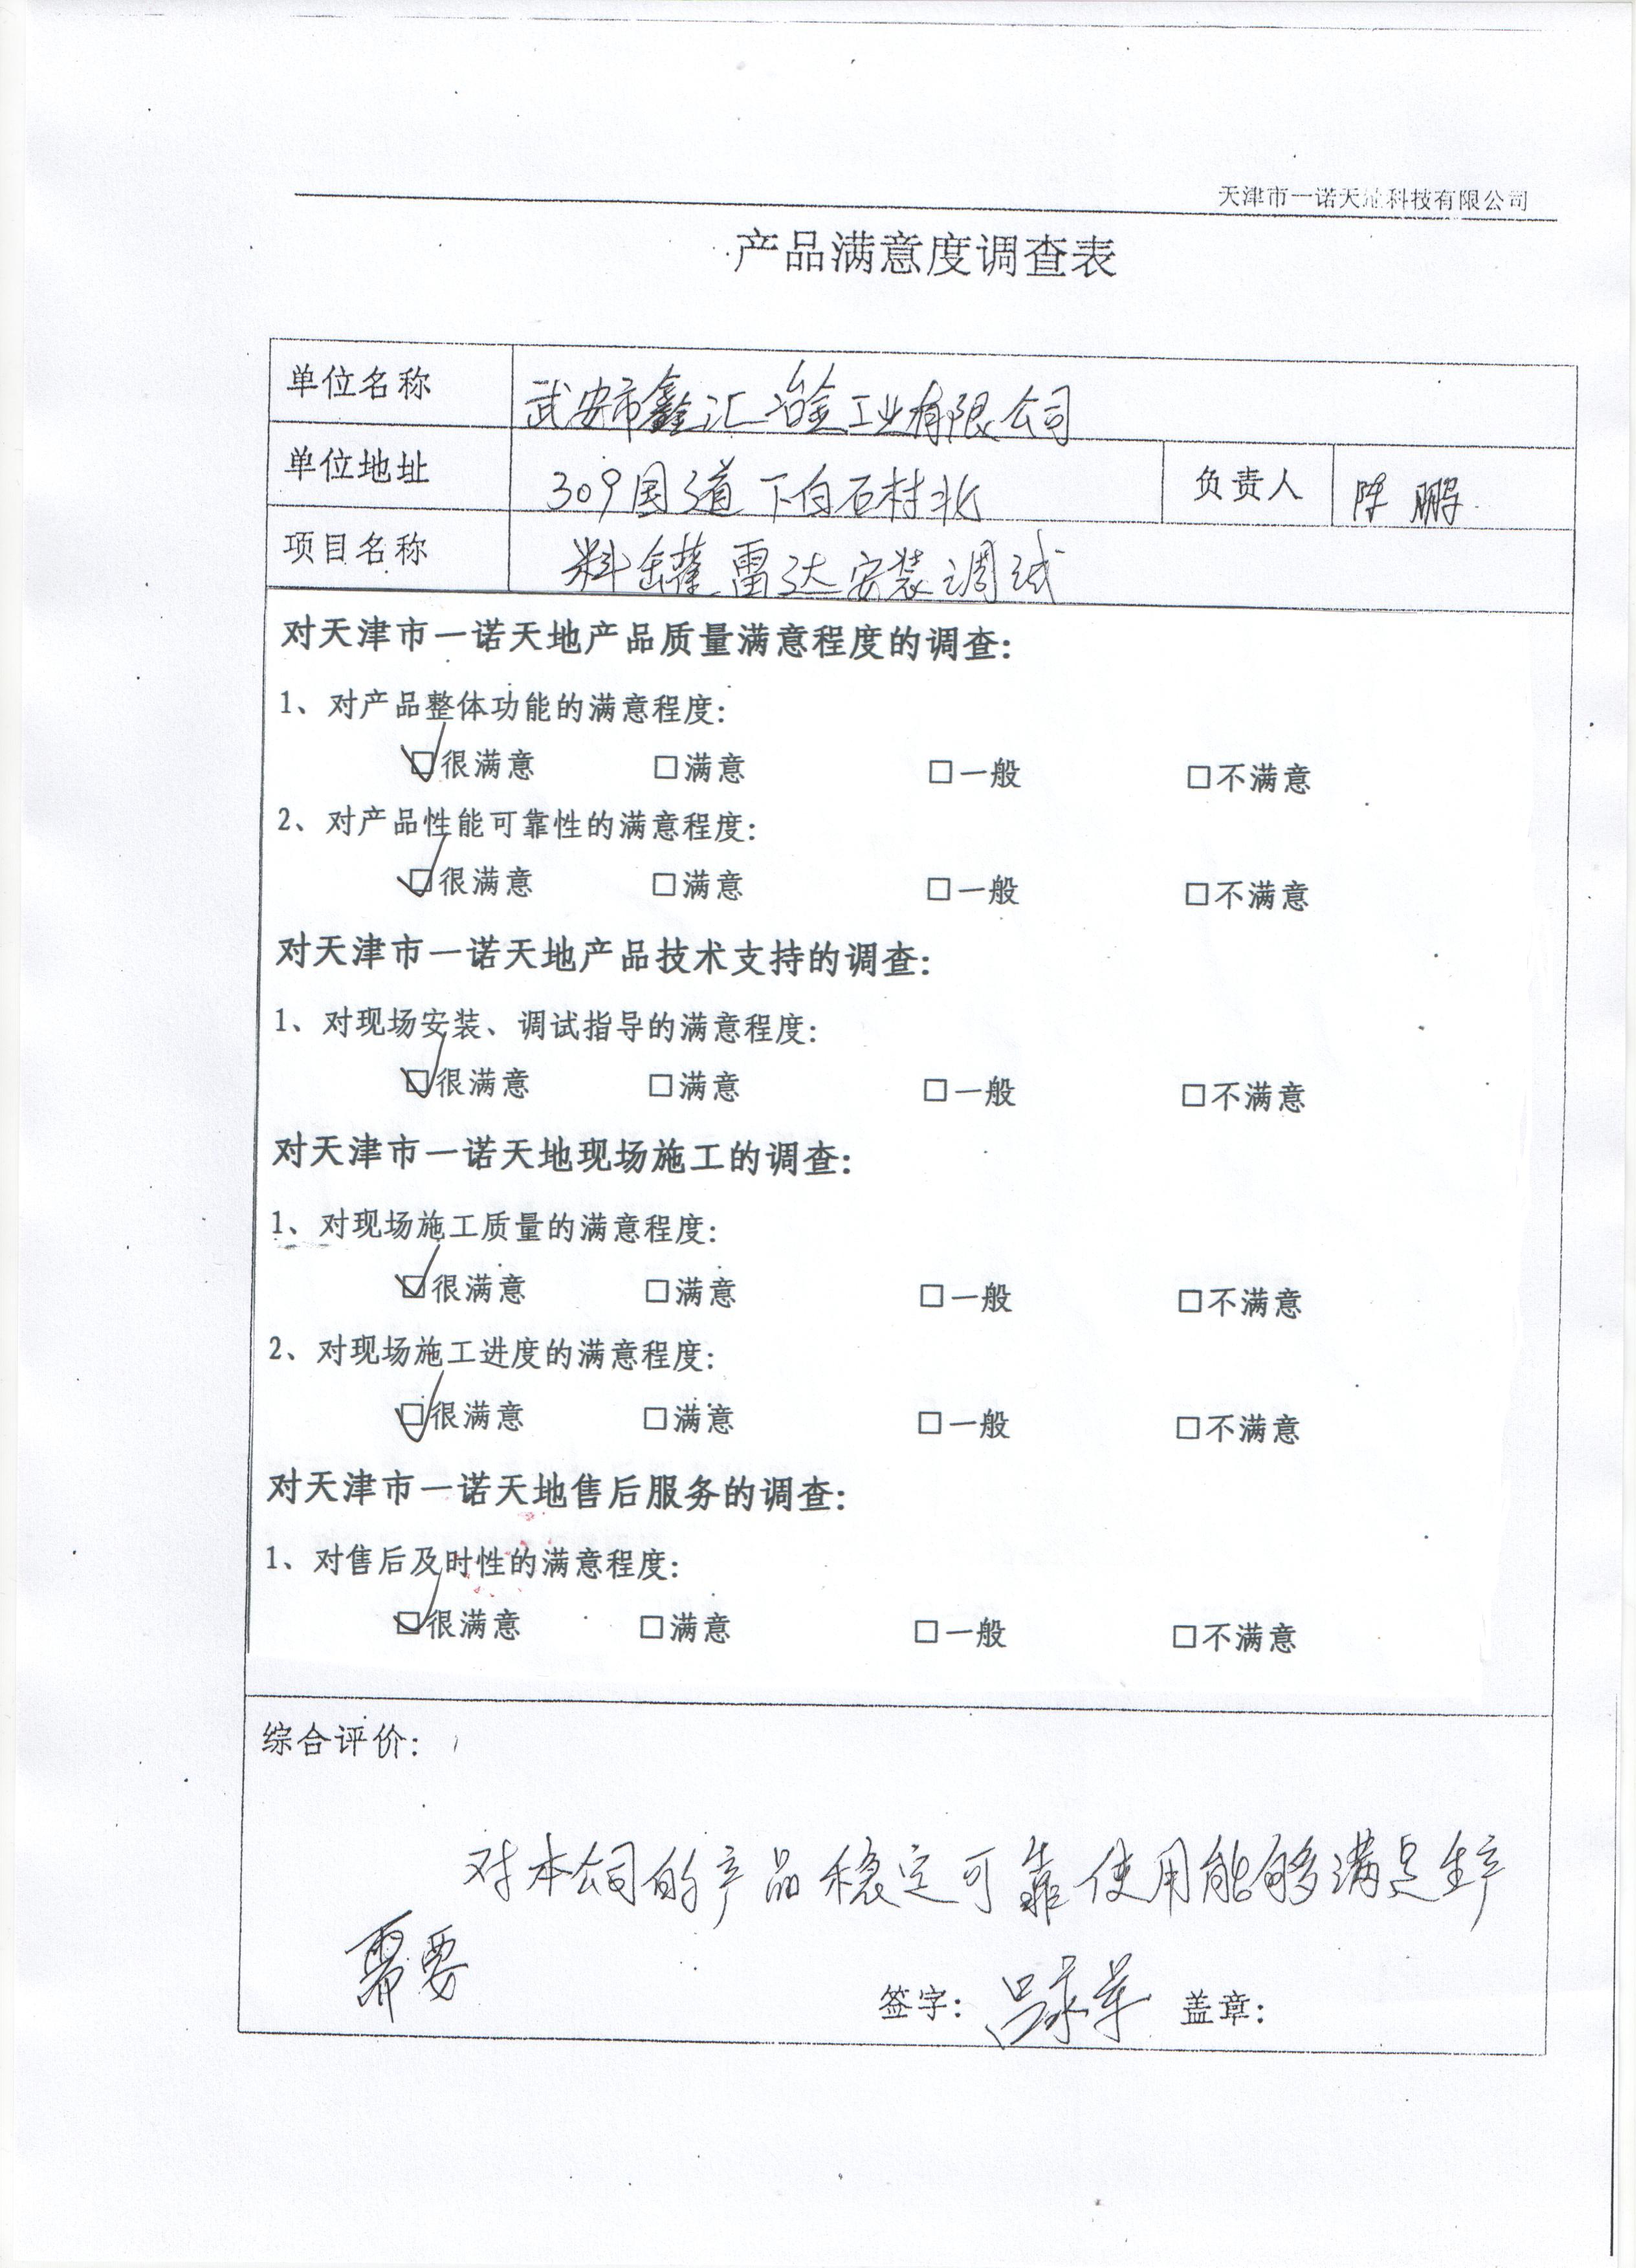 天津市一诺天地科技有限公司
产品满意度调查表
单位名称 武安市鑫汇冶金工业有限公司
单位地址 309国道下白石村北 负责人 陈鹏
项目名称 料罐雷达安装调试
对天津市一诺天地产品质量满意程度的调查:
1、对产品整体功能的满意程度:
☑很满意 □满意 □一般 □不满意
2、对产品性能可靠性的满意程度:
☑很满意 □满意 □一般 □不满意
对天津市一诺天地产品技术支持的调查:
1、对现场安装、调试指导的满意程度:
☑很满意 □满意 □一般 □不满意
对天津市一诺天地现场施工的调查:
1、对现场施工质量的满意程度:
☑很满意 □满意 □一般 □不满意
2、对现场施工进度的满意程度:
☑很满意 □满意 □一般 □不满意
对天津市一诺天地售后服务的调查:
1、对售后及时性的满意程度:
☑很满意 □满意 □一般 □不满意
综合评价:
对本公司的产品稳定可靠使用能够满足生产
需要
签字: 盖章: